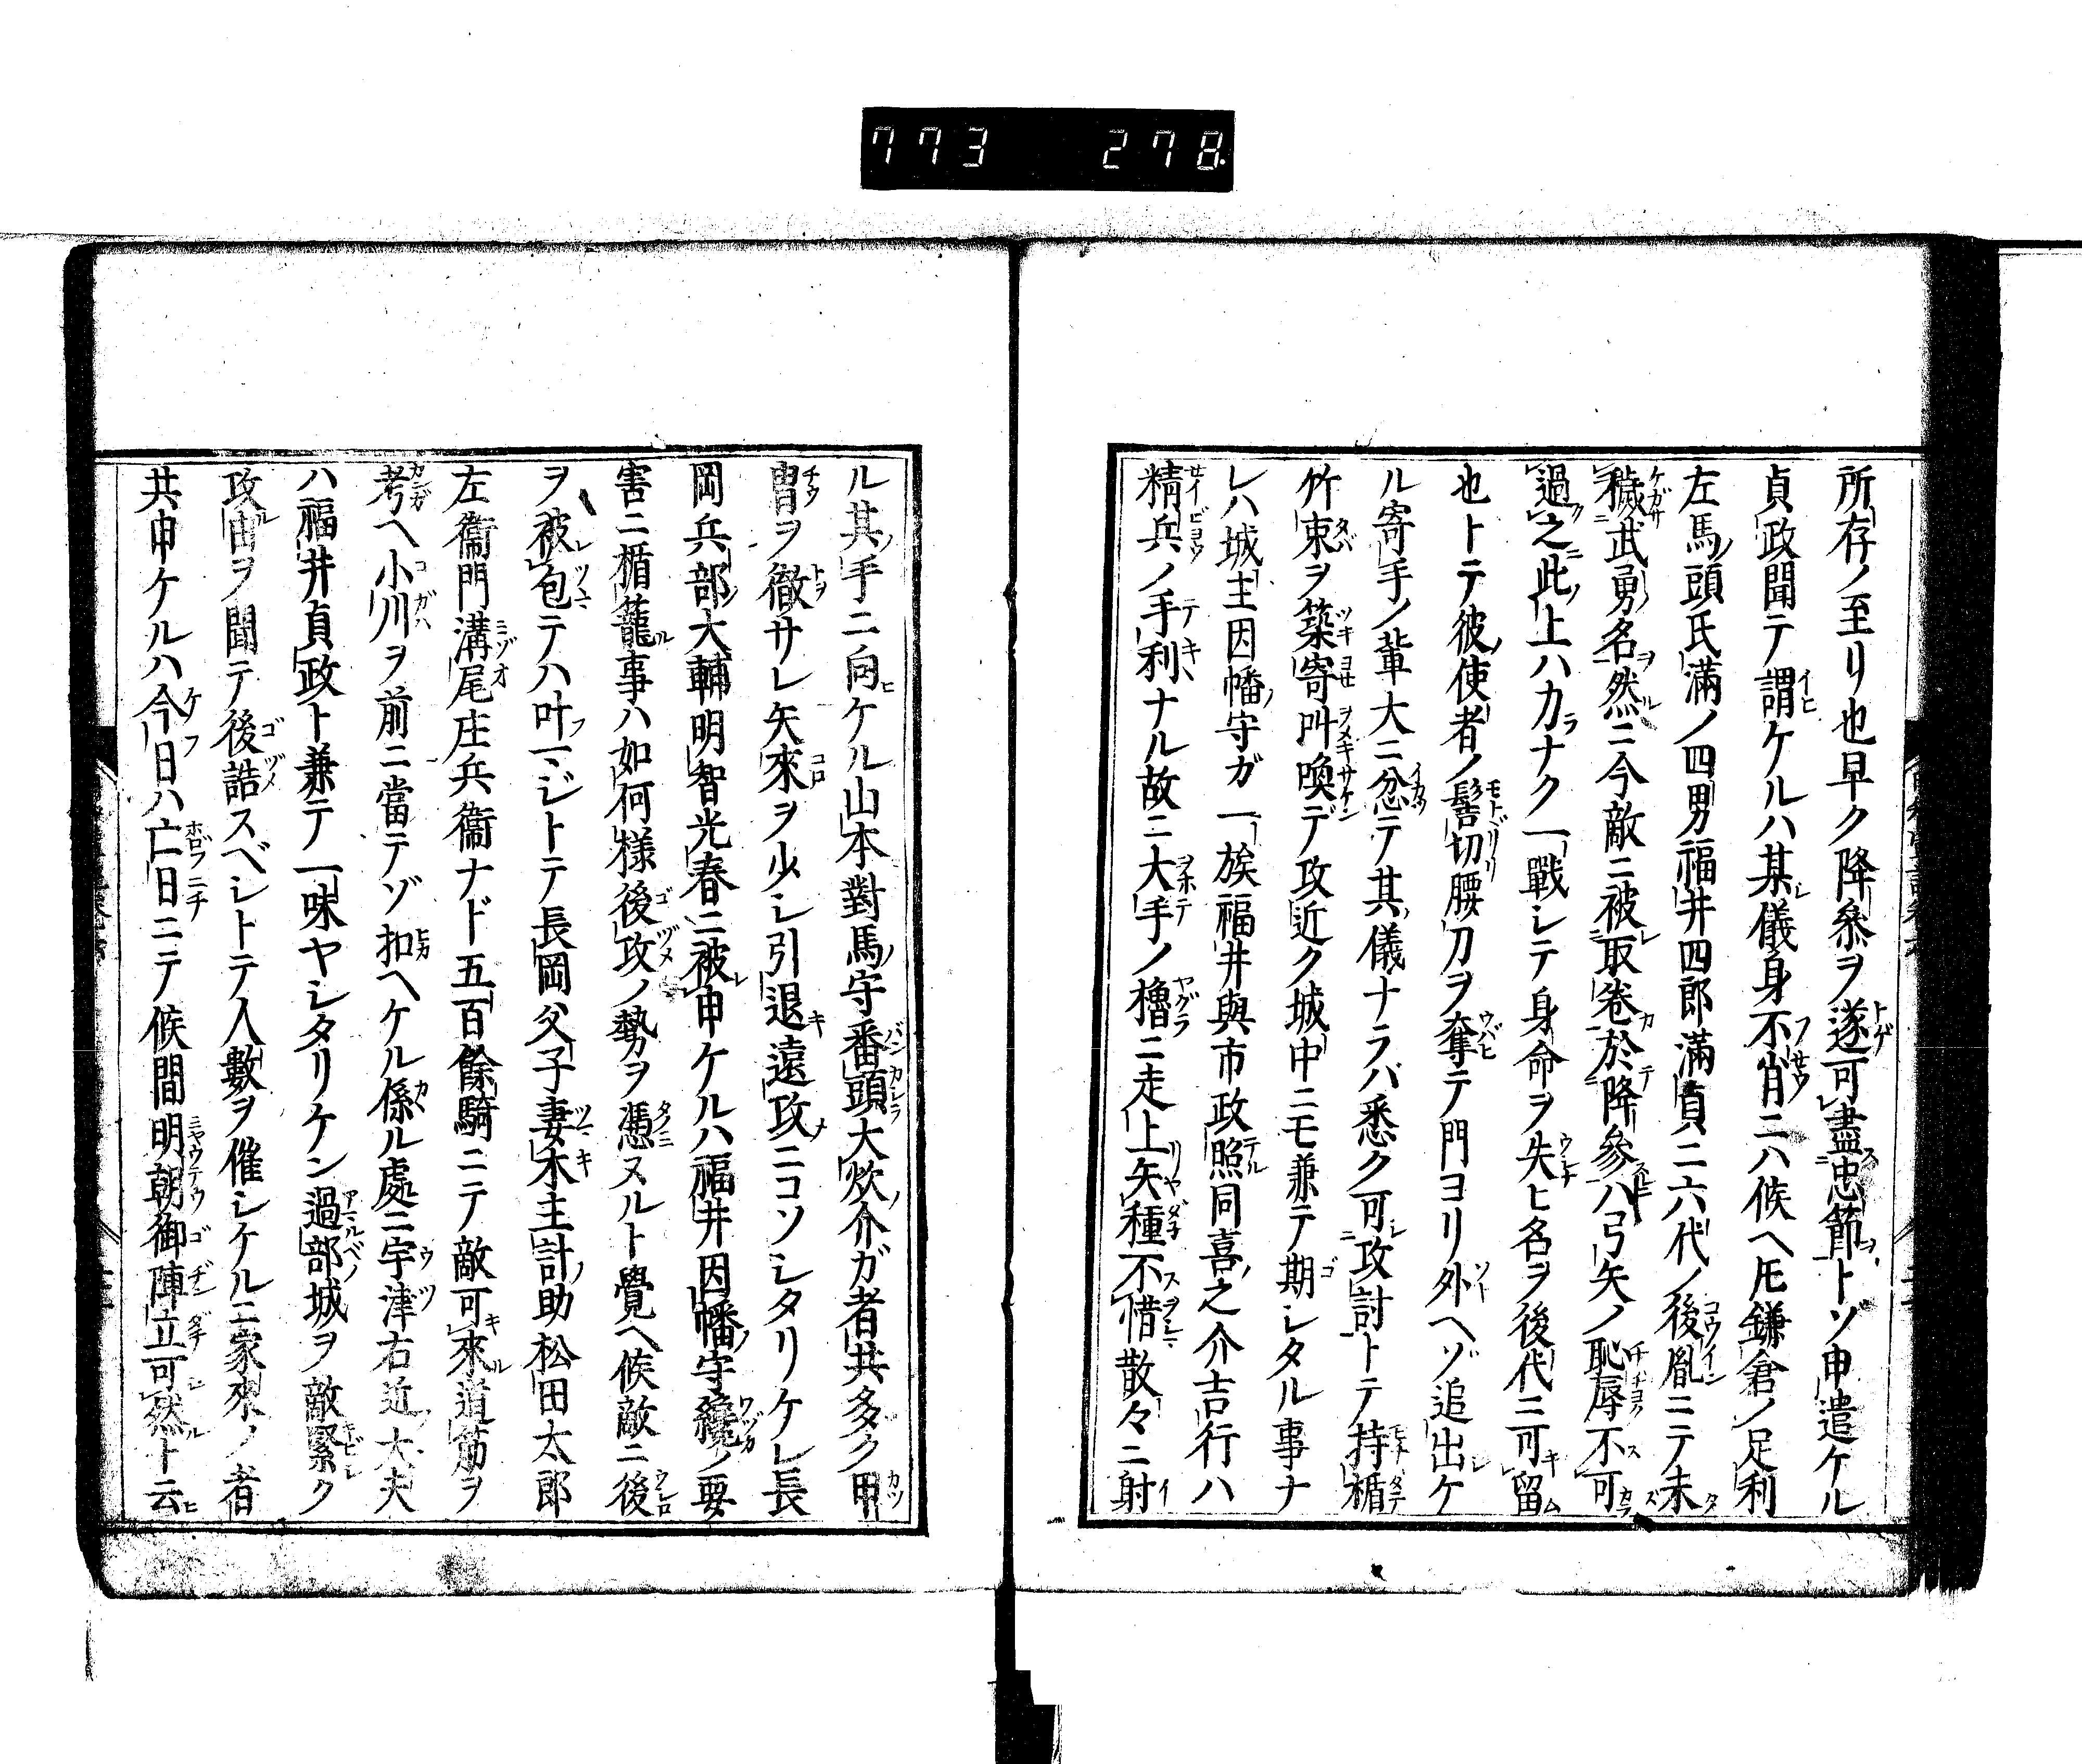 773 278
所存ノ至リ也早ク降参ヲ遂可盡忠節トゾ申遣ケル
貞政聞テ謂ケルハ某儀身不肖ニハ候ヘ𪜈鎌倉ノ足利
左馬頭氏滿ノ四男福井四郎滿貞ニ六代ノ後胤ニテ未
穢武勇名然ニ今敵ニ被取巻於降參ハ弓矢ノ恥辱不可
過之此上ハ力ナク一戰シテ身命ヲ失ヒ名ヲ後代ニ可留
也トテ彼使者ノ髻切腰刀ヲ奪テ門ヨリ外ヘゾ追出ケ
ル寄手ノ輩大ニ忿テ其儀ナラバ悉ク可攻討トテ持楯
竹束ヲ築寄叫喚デ攻近ク城中ニモ兼テ期シタル事ナ
レハ城主因幡守ガ一族福井與市政照同喜之介吉行ハ
精兵ノ手利ナル故ニ大手ノ櫓ニ走上矢種不惜散々ニ射
ル其手ニ向ケル山本對馬守番頭大炊介ガ者共多ク甲
冑ヲ徹サレ矢來ヲ少シ引退遠攻ニコソシタリケレ長
岡兵部大輔明智光春ニ被申ケルハ福井因幡守纔ノ要
害ニ楯籠事ハ如何樣後攻ノ勢ヲ憑ヌルト覺ヘ候敵ニ後
ヲ被包テハ叶マジトテ長岡父子妻木主計助松田太郎
左衞門溝尾庄兵衞ナド五百餘騎ニテ敵可來道筋ヲ
考ヘ小川ヲ前ニ當テゾ扣ヘケル係ル處ニ宇津右近大夫
ハ福井貞政ト兼テ一味ヤシタリケン過部城ヲ敵緊ク
攻由ヲ聞テ後詰スベシトテ人數ヲ催シケルニ家來ノ者
共申ケルハ今日ハ亡日ニテ候間明朝御陣立可然ト云